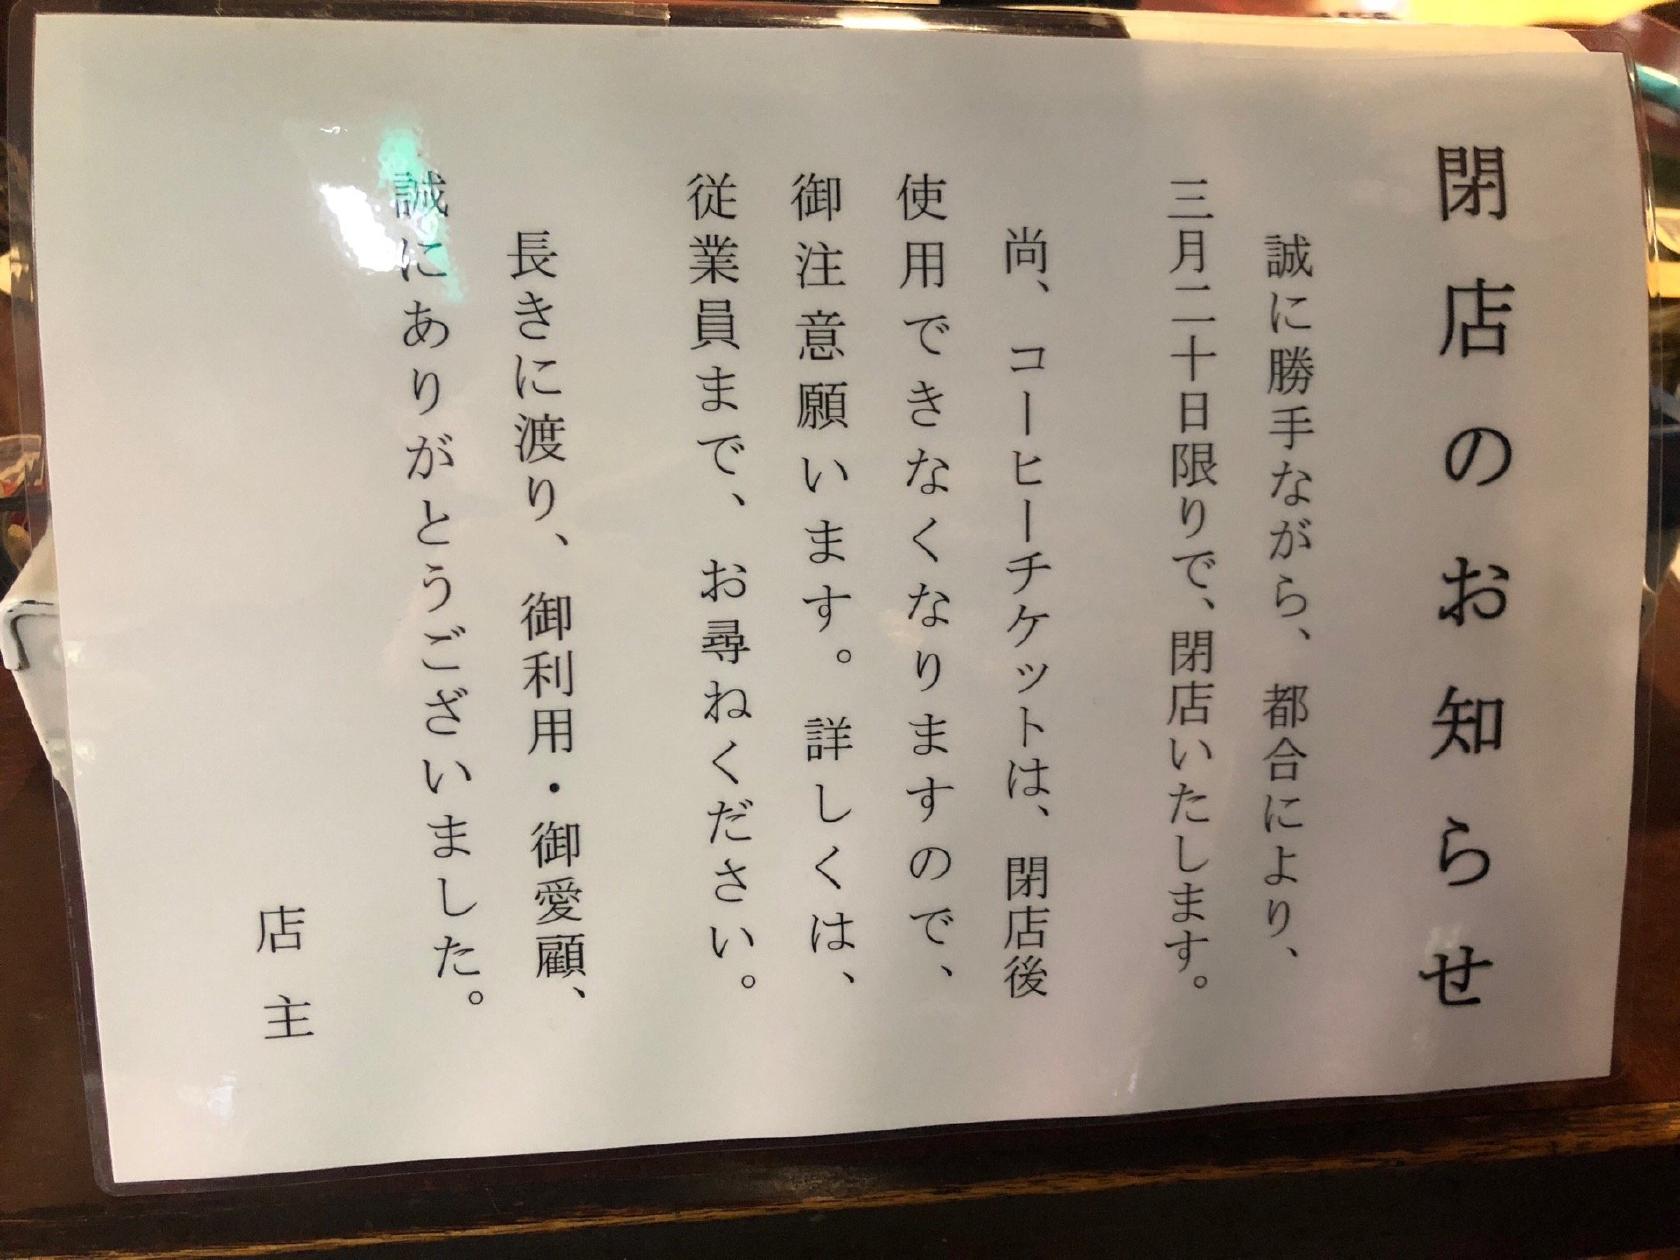 閉店のお知らせ
誠に勝手ながら、都合により、
三月二十日限りで、閉店いたします。
尚、コーヒーチケットは、閉店後
使用できなくなりますので、
御注意願います。詳しくは、
従業員まで、お尋ねください。
長きに渡り、御利用・御愛顧、
誠にありがとうございました。
店主